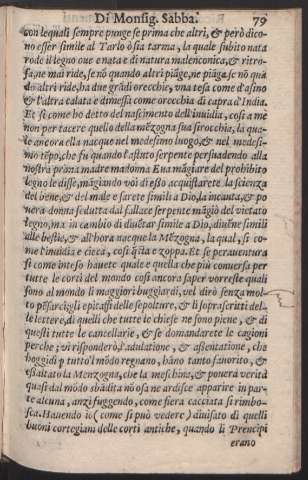 Di Monsig. Sabba. 79
con lequali sempre punge se prima che altri, & però dico-
no esser simile al Tarlo ò sia tarma, la quale subito nata
rode il legno oue e nata e di natura malenconica, & ritro-
sa, ne mai ride, se nõ quando altri piãge, ne piãge se nõ quã
do altri ride, ha due grãdi orecchie, vna tesa come d'asino
& l'altra calata e dimessa come orecchia di capra d'India.
Et si come ho detto del nascimento dell'inuidia, cosi a me
non par tacere quello della mẽzogna sua sirocchia, la qua-
le ancora ella nacque nel medesimo luogo, & nel medesi-
mo tẽpo, che fu quando l'astuto serpente persuadendo alla
nostra prima madre madonna Eua mãgiare del prohibito
legno le disse, mãgiando voi di esso acquistarete la scienza
del bene, & del male e sarete simili a Dio, la incauta, & po
uera donna sedutta dal fallace serpente mãgiò del vietato
legno, ma in cambio di diuẽtar simile a Dio, diuẽne simili
alle bestie, & all'hora nacque la Mẽzogna, la qual, si co-
me l'inuidia e cieca, cosi q̃lla e zoppa. Et se perauentura
si come inteso hauete quale e quella che più conuersa per
tutte le corti del mondo cosi ancora saper vorreste quali
sono al mondo li maggiori buggiardi, vel dirò senza mol-
to pẽsarci, gli epitaffi delle sepolture, & li soprascritti del-
le lettere, di quelli che tutte le chiese ne sono piene, & di
questi tutte le cancellarie, & se domandarete le cagioni
perche; vi risponderò, l'adulatione, & assentatione, che
hoggidi p tutto l'mõdo regnano, hãno tanto fauorito, &
essaltato la Menzogna, che la meschina, & pouera verità
quasi dal mõdo sbãdita nõ osa ne ardisce apparire in par-
te alcuna, anzi fuggendo, come fiera cacciata si rimbo-
sca. Hauendo io (come si può vedere) diuisato di quelli
buoni cortegiani delle corti antiche, quando li Prencipi
erano